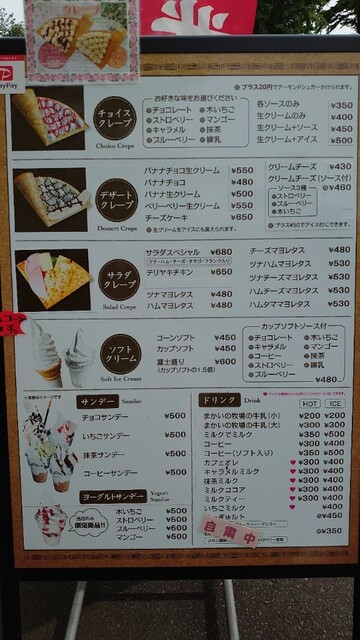 PayPay
チョイス
クレープ
Choice Crepe
プラス20円でアーモンドシュガーかけられます。
お好きな味をお選びください
チョコレート 木いちご
ストロベリー マンゴー
キャラメル 抹茶
ブルーベリー 練乳
各ソースのみ ¥350
生クリームのみ ¥400
生クリーム+ソース ¥450
生クリーム+アイス ¥500
デザート
クレープ
Dessert Crepe
バナナチョコ生クリーム ¥550
バナナチョコ ¥480
バナナ生クリーム ¥500
ベリーベリー生クリーム ¥550
チーズケーキ ¥650
生クリームをアイスにも変えられます。
クリームチーズ ¥430
クリームチーズ(ソース付)
¥460
ソース3種
ストロベリー
ブルーベリー
木いちご
プラス¥50でアイス付にできます。
サラダ
クレープ
Salad Crepe
サラダスペシャル ¥680
ツナ・ハム・チーズ・タマゴ・フランク入り
テリヤキチキン ¥650
ツナマヨレタス ¥480
ハムマヨレタス ¥480
チーズマヨレタス ¥480
ツナハムマヨレタス ¥530
ツナチーズマヨレタス ¥530
ハムチーズマヨレタス ¥530
ハムタママヨレタス ¥530
ソフト
クリーム
Soft Ice Cream
コーンソフト ¥450
カップソフト ¥450
富士盛り ¥600
(カップソフトの1.5倍)
カップソフトソース付
チョコレート 木いちご
キャラメル マンゴー
コーヒー 抹茶
ストロベリー 練乳
ブルーベリー
¥480
※写真はイメージです
サンデー Sundae
チョコサンデー ¥500
いちごサンデー ¥500
抹茶サンデー ¥500
コーヒーサンデー ¥500
ヨーグルトサンデー Yogurt Sundae
当店のみ
限定商品!!
木いちご ¥500
ストロベリー ¥500
ブルーベリー ¥500
マンゴー ¥500
ドリンク Drink
HOT ICE
まかいの牧場の牛乳(小) ¥200 ¥200
まかいの牧場の牛乳(大) ¥300 ¥300
ミルクでミルク ¥350 ¥500
コーヒー ¥300 ¥400
コーヒー(ソフト入り) ¥350 ¥500
カフェオレ ¥300 ¥400
キャラメルミルク ¥300 ¥400
抹茶ミルク ¥300 ¥400
ミルクココア ¥300 ¥400
ミルクティー ¥300 ¥400
いちごミルク ¥400
¥450
自集中
¥350